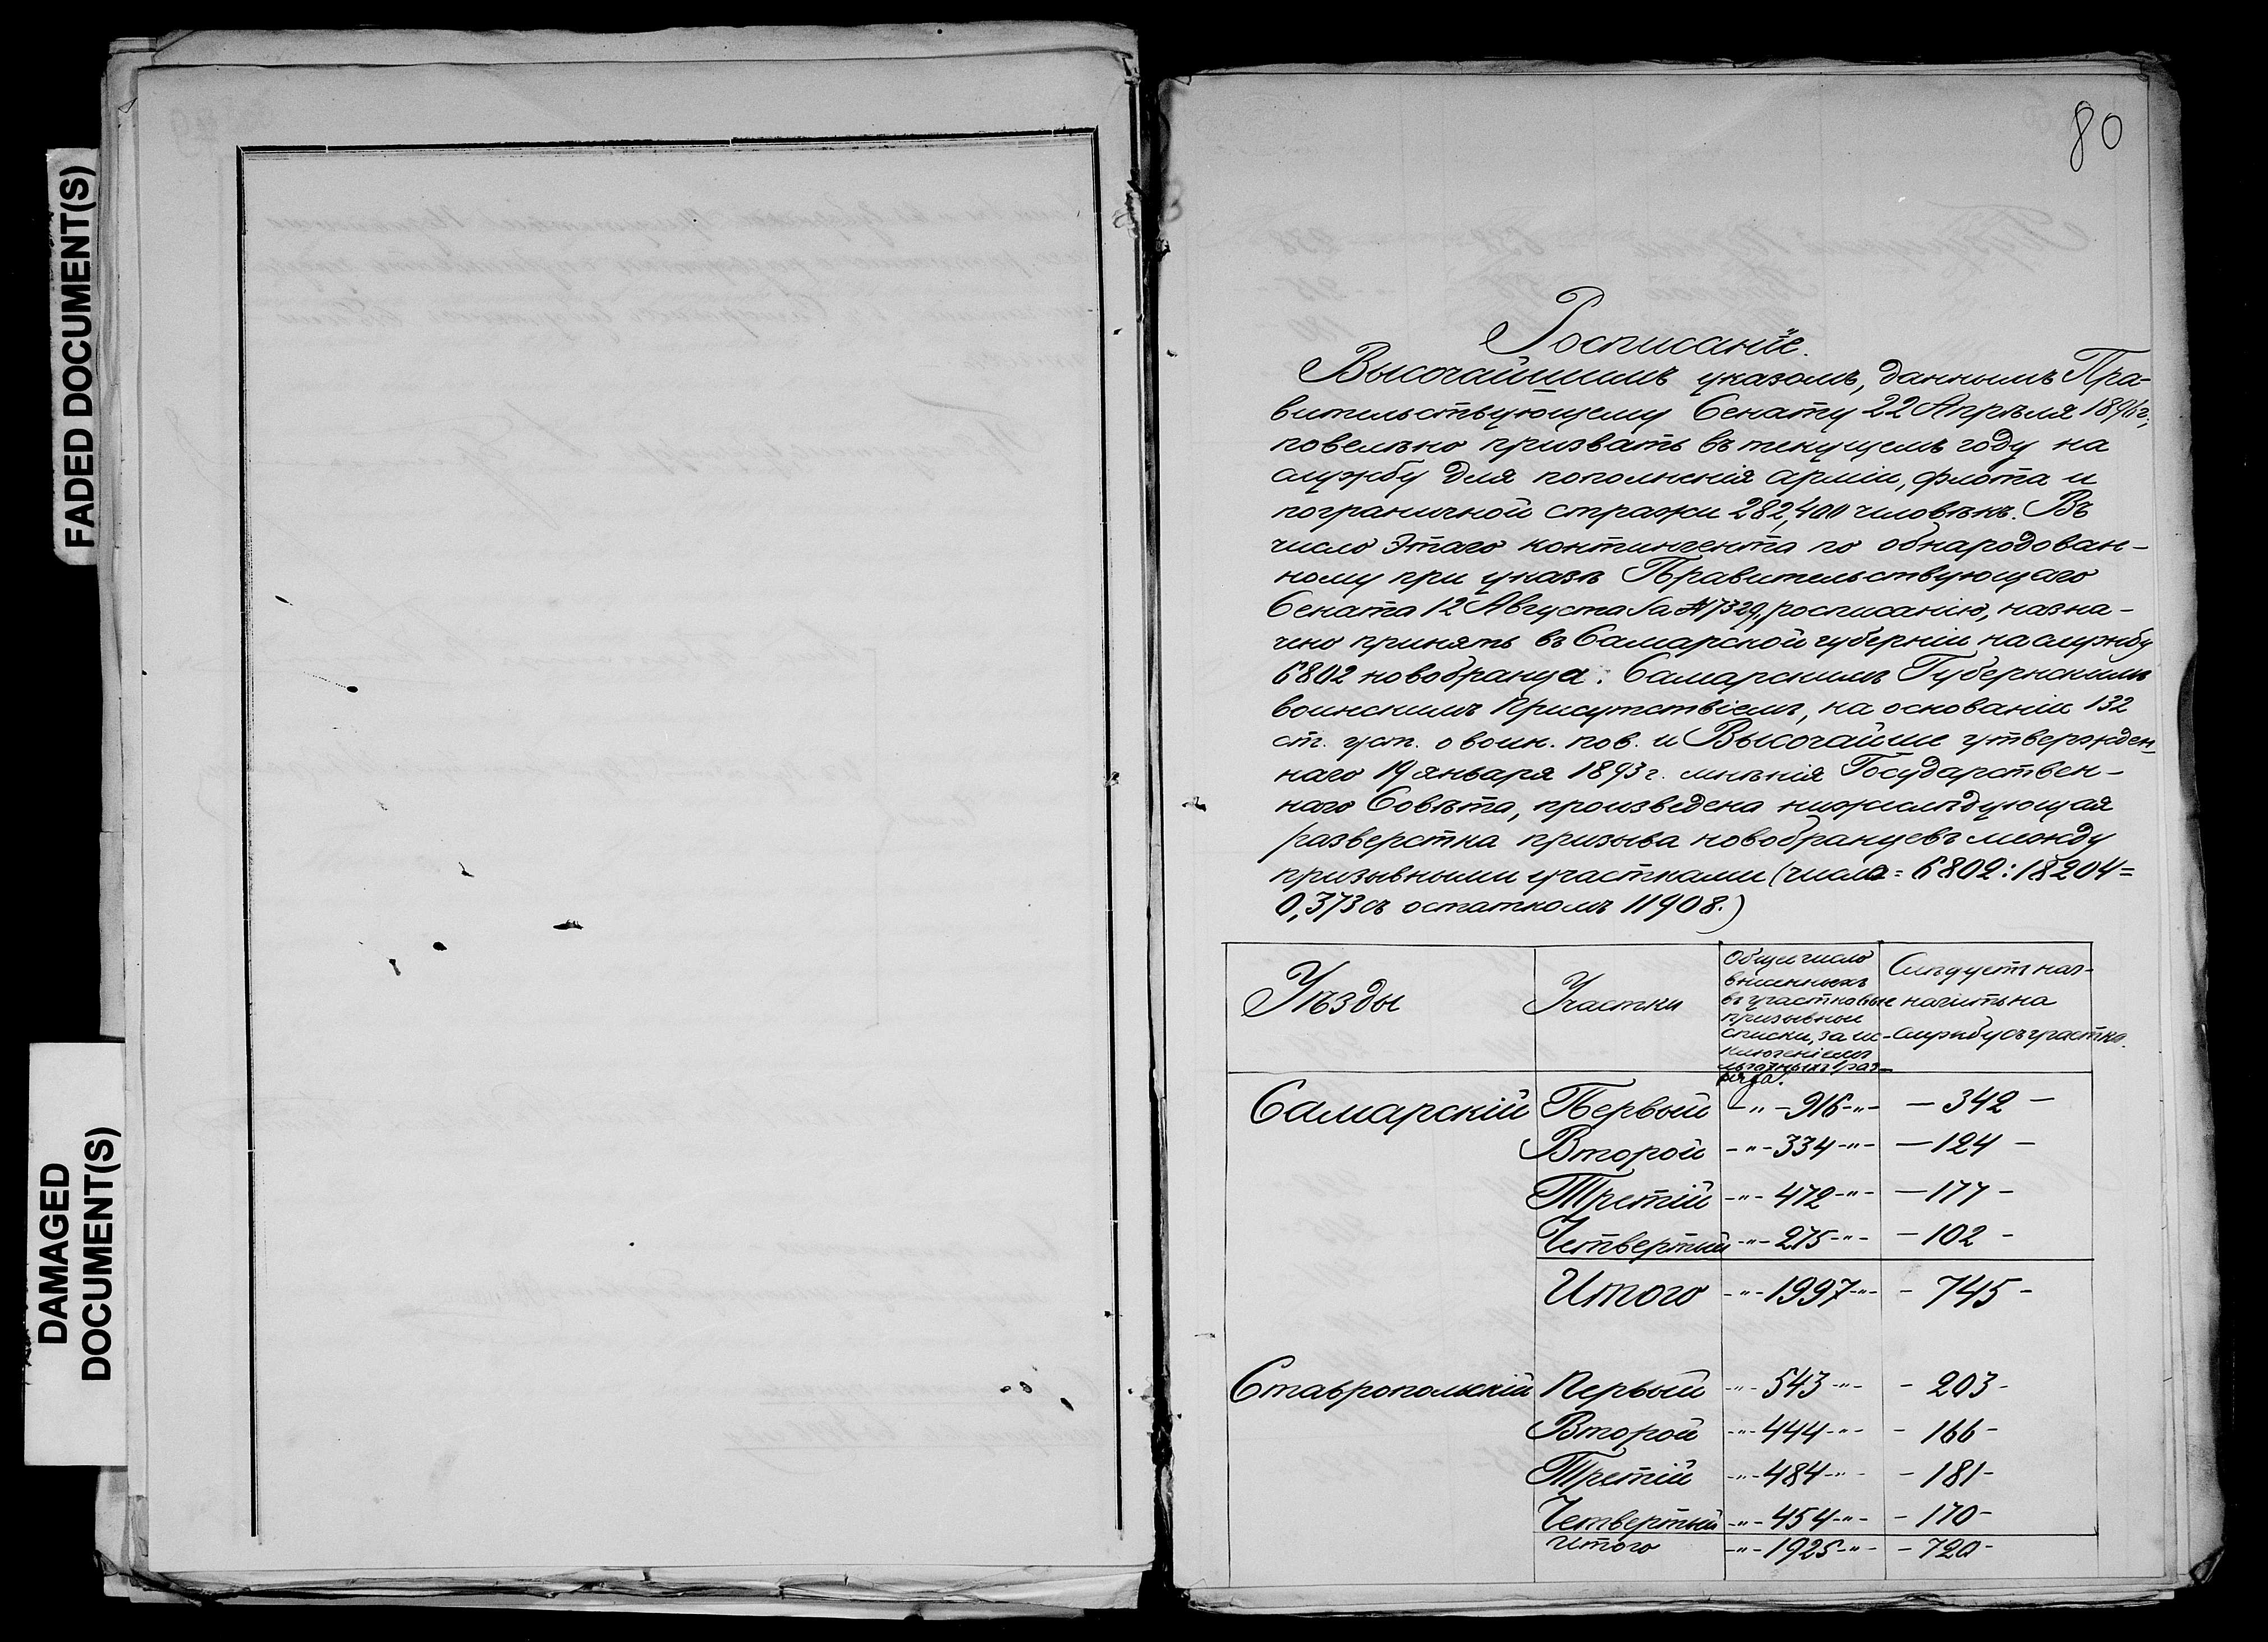 FADED DOCUMENT(S)
DAMAGED
DOCUMENT(S)
80
Росписаніе.
Высочайшимъ указомъ, даннымъ Пра-
вительствующему Сенату 22 Апрѣля 1896 г.,
повелѣно призвать въ текущемъ году на
службу для пополненія арміи, флота и
пограничной стражи 282,400 человѣкъ. Въ
число этаго контингента по обнародован-
ному при указѣ Правительствующаго
Сената 12 Августа за № 7329, росписанію, назна-
чено принять въ Самарской губерніи на службу
6802 новобранца. Самарскимъ Губернскимъ
воинскимъ Присутствіемъ, на основаніи 132
ст. уст. о воин. пов. и Высочайше утвержден-
наго 19 января 1893 г. мнѣнія Государствен-
наго Совѣта, произведена нижеслѣдующая
разверстка призыва новобранцевъ между
призывными участками (числа = 6802 : 18204 =
0,373 съ остаткомъ 11908.)
Уѣзды Участки Общее число внесенныхъ въ участковые призывные списки, за исключеніемъ льготныхъ 1 разряда. Слѣдуетъ наз-начить на службу съ участка.
Самарскій Первый -"- 916 -"- - 342 -
Второй -"- 334 -"- - 124 -
Третій -"- 472 -"- - 177 -
Четвертый -"- 275 -"- - 102 -
Итого -"- 1997 -"- - 745 -
Ставропольскій Первый -"- 543 -"- - 203 -
Второй -"- 444 -"- - 166 -
Третій -"- 484 -"- - 181 -
Четвертый -"- 454 -"- - 170 -
Итого -"- 1925 -"- - 720 -